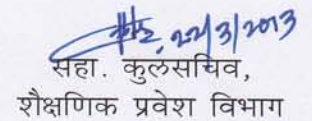 22/3/2013
सहा. कुलसचिव,
शैक्षणिक प्रवेश विभाग